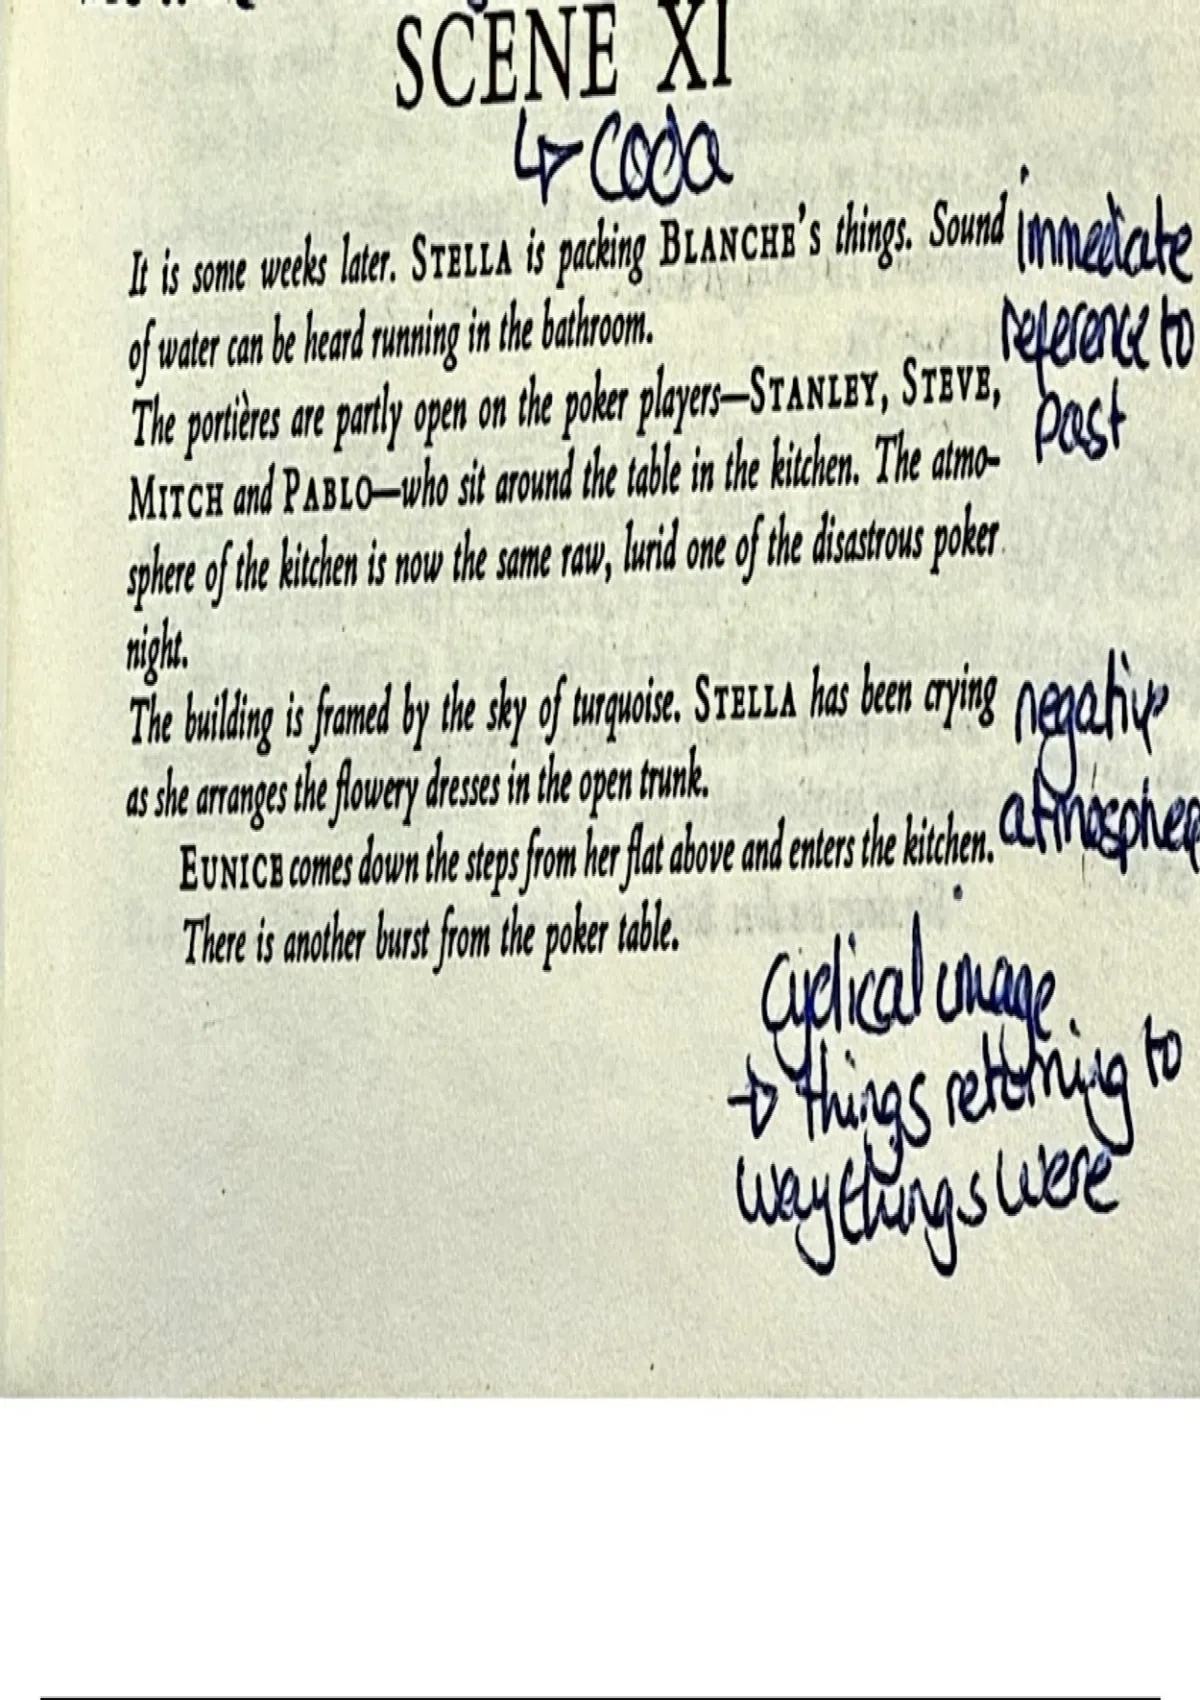 SCENE XI
↳ Coda
It is some weeks later. STELLA is packing BLANCHE's things. Sound
of water can be heard running in the bathroom.
The portières are partly open on the poker players—STANLEY, STEVE,
MITCH and PABLO—who sit around the table in the kitchen. The atmo-
sphere of the kitchen is now the same raw, lurid one of the disastrous poker
night.
The building is framed by the sky of turquoise. STELLA has been crying
as she arranges the flowery dresses in the open trunk.
EUNICE comes down the steps from her flat above and enters the kitchen.
There is another burst from the poker table.
immediate
reference to
past
negative
atmosphere
cyclical image
→ things returning to
way things were